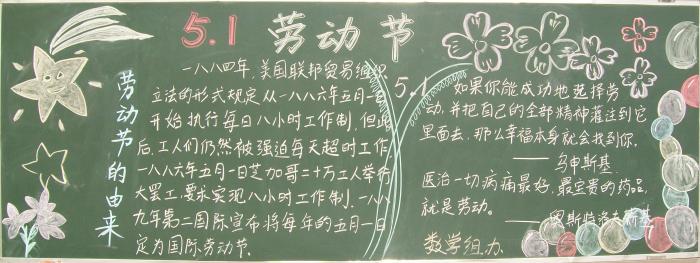 5.1 劳动节
劳动节的由来
一八八四年,美国联邦贸易组织
立法的形式规定从一八八六年五月一日
开始执行每日八小时工作制,但此
后,工人们仍然被强迫每天超时工作
一八八六年五月一日芝加哥二十万工人举行
大罢工,要求实现八小时工作制.一八八
九年第二国际宣布将每年的五月一日
定为国际劳动节.
5.1
如果你能成功地选择劳
动,并把自己的全部精神灌注到它
里面去,那么幸福本身就会找到你.
——乌申斯基
医治一切病痛最好,最宝贵的药品,
就是劳动。
——奥斯特洛夫斯基
数学组.办